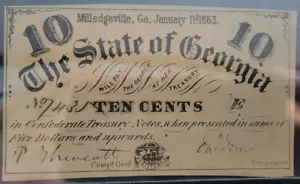 Milledgeville, Ga. January 1st 1863.
10 10
The State of Georgia
WILL PAY THE BEARER AT HER TREASURY
No 7431 TEN CENTS E
in Confederate Treasury Notes, when presented in sums of
Five Dollars and upwards.
Compt Genl